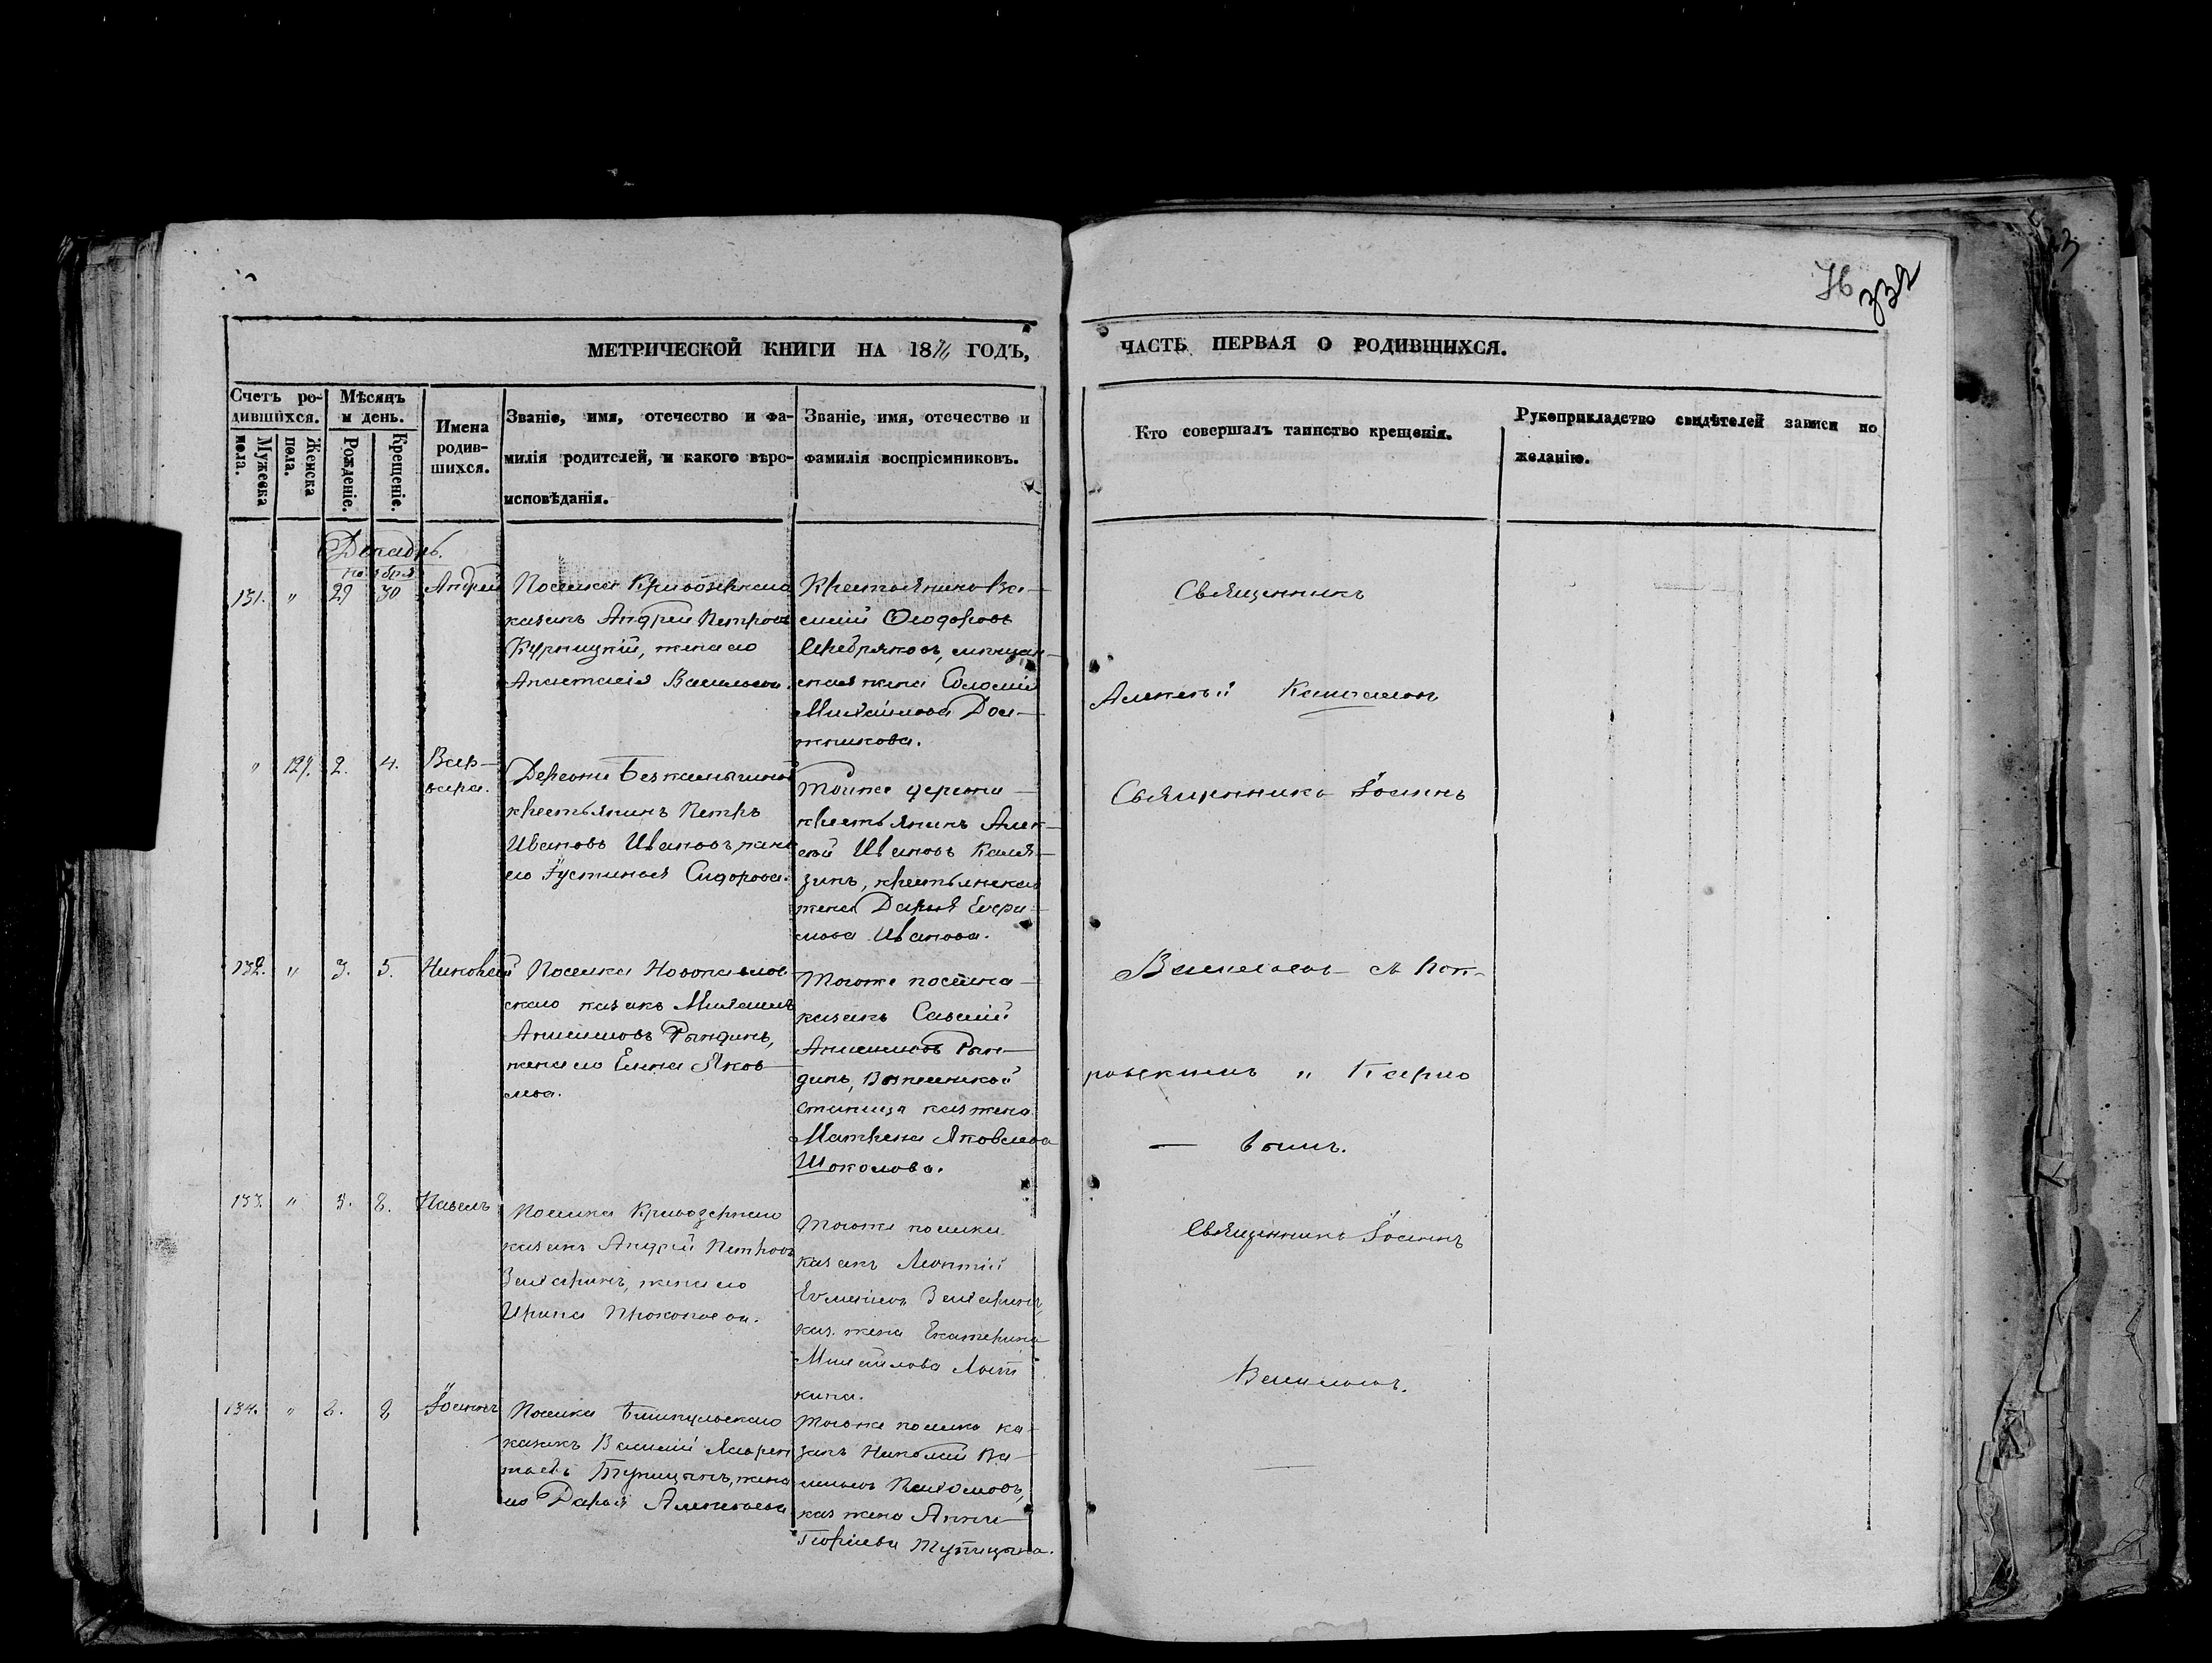 76
332
МЕТРИЧЕСКОЙ КНИГИ НА 1876 ГОДЪ,
ЧАСТЬ ПЕРВАЯ О РОДИВШИХСЯ.
Счетъ ро-
дившихся.
Мужеска
пола.
Женска
пола.
Мѣсяцъ
и день.
Рожденіе.
Крещеніе.
Имена
родив-
шихся.
Званіе, имя, отечество и фа-
милія родителей, и какого вѣро-
исповѣданія.
Званіе, имя, отечество и
фамилія воспріемниковъ.
Кто совершалъ таинство крещенія.
Рукоприкладство свидѣтелей записи по
желанію.
Декабрь.
ноября
131. " 29 30 Андрей
Поселка Кривозернаго
казакъ Андрей Петровъ
Курницкій, жена его
Анастасія Васильева.
Крестьянинъ Ва-
силій Ѳеодоровъ
Серебряковъ, мѣщан-
ская жена Соломія
Михайлова Дол-
жникова.
Священникъ
Алексѣй
" 129. 2. 4. Вар-
вара.
Деревни Безкамышной
крестьянинъ Петръ
Ивановъ Ивановъ, жена
его Іустинья Сидорова.
Тойже деревни
крестьянинъ Алек-
сѣй Ивановъ Каля-
зинъ, крестьянская
жена Дарья
Иванова.
Священникъ Іоаннъ
132. " 3. 5. Николай
Поселка
казакъ Михаилъ
Анисимовъ Рындинъ,
жена его Елена Яков-
лева.
Тогоже поселка
казакъ Савелій
Анисимовъ Рын-
динъ,
станицы каз жена
Матрена Яковлева
Шоколова.
Васильевъ съ
133. " 3. 8. Павелъ
Поселка Кривозернаго
казакъ Андрей Петровъ
жена его
Ирина Прокопьева.
Тогоже поселка
казакъ Леонтій
каз. жена Екатерина
Михайлова Лот
кина.
Священникъ Іоаннъ
Васильевъ.
134. " 8. 8 Іоаннъ
Поселка
казакъ Василій Лаврен
тьевъ Тупицынъ, жена
его Дарья Алексѣева
Тогоже поселка ка-
закъ Николай Ва-
сильевъ Пахомовъ,
каз жена Анна
Георгіева Тупицына.